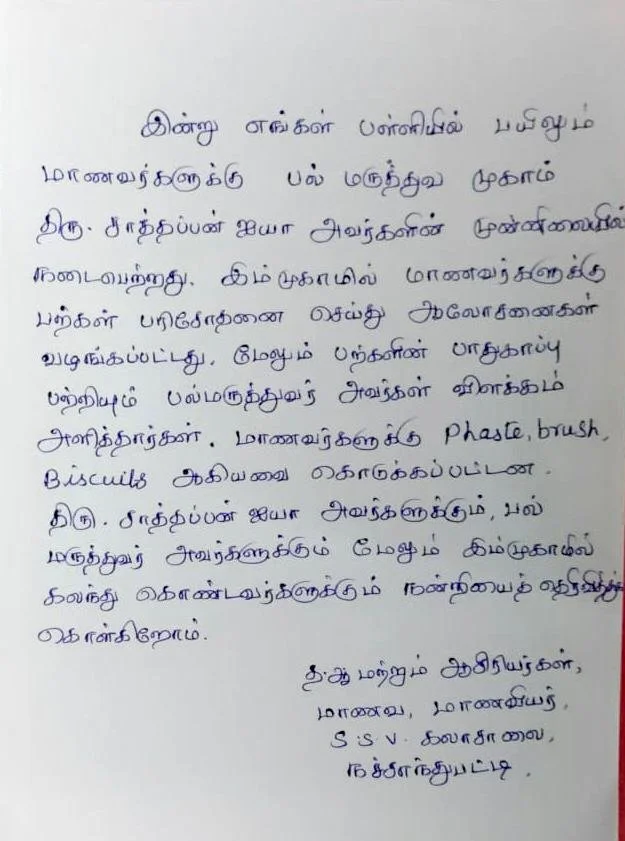 இன்று எங்கள் பள்ளியில் பயிலும்
மாணவர்களுக்கு பல் மருத்துவ முகாம்
திரு. சாத்தப்பன் ஐயா அவர்களின் முன்னிலையில்
நடைபெற்றது. இம்முகாமில் மாணவர்களுக்கு
பற்கள் பரிசோதனை செய்து ஆலோசனைகள்
வழங்கப்பட்டது. மேலும் பற்களின் பாதுகாப்பு
பற்றியும் பல்மருத்துவர் அவர்கள் விளக்கம்
அளித்தார்கள். மாணவர்களுக்கு Phaste, brush,
Biscuits ஆகியவை கொடுக்கப்பட்டன.
திரு. சாத்தப்பன் ஐயா அவர்களுக்கும், பல்
மருத்துவர் அவர்களுக்கும் மேலும் இம்முகாமில்
கலந்து கொண்டவர்களுக்கும் நன்றியைத் தெரிவித்துக்
கொள்கிறோம்.
த.ஆ மற்றும் ஆசிரியர்கள்,
மாணவ, மாணவியர்,
S.S.V. கலாசாலை,
நச்சாந்துபட்டி.